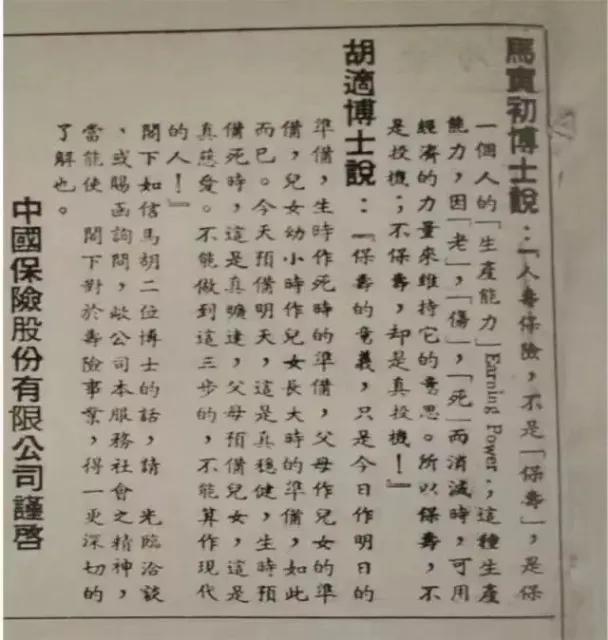 馬寅初博士說：『人壽保險，不是「保壽」，是保
一個人的「生產能力」Earning Power：，這種生產
能力，因「老」，「傷」，「死」而消滅時，可用
經濟的力量來維持它的意思。所以保壽，不
是投機；不保壽，却是真投機！』
胡適博士說：『保壽的意義，只是今日作明日的
準備，生時作死時的準備，父母作兒女的準
備，兒女幼小時作兒女長大時的準備，如此
而已。今天預備明天，這是真穩健，生時預
備死時，這是真曠達，父母預備兒女，這是
真慈愛。不能做到這三步的，不能算作現代
的人！』
閣下如信馬胡二位博士的話，請　光臨洽談
、或賜函詢問，敝公司本服務社會之精神，
當能使　閣下對於壽險事業，得一更深切的
了解也。
中國保險股份有限公司謹啓